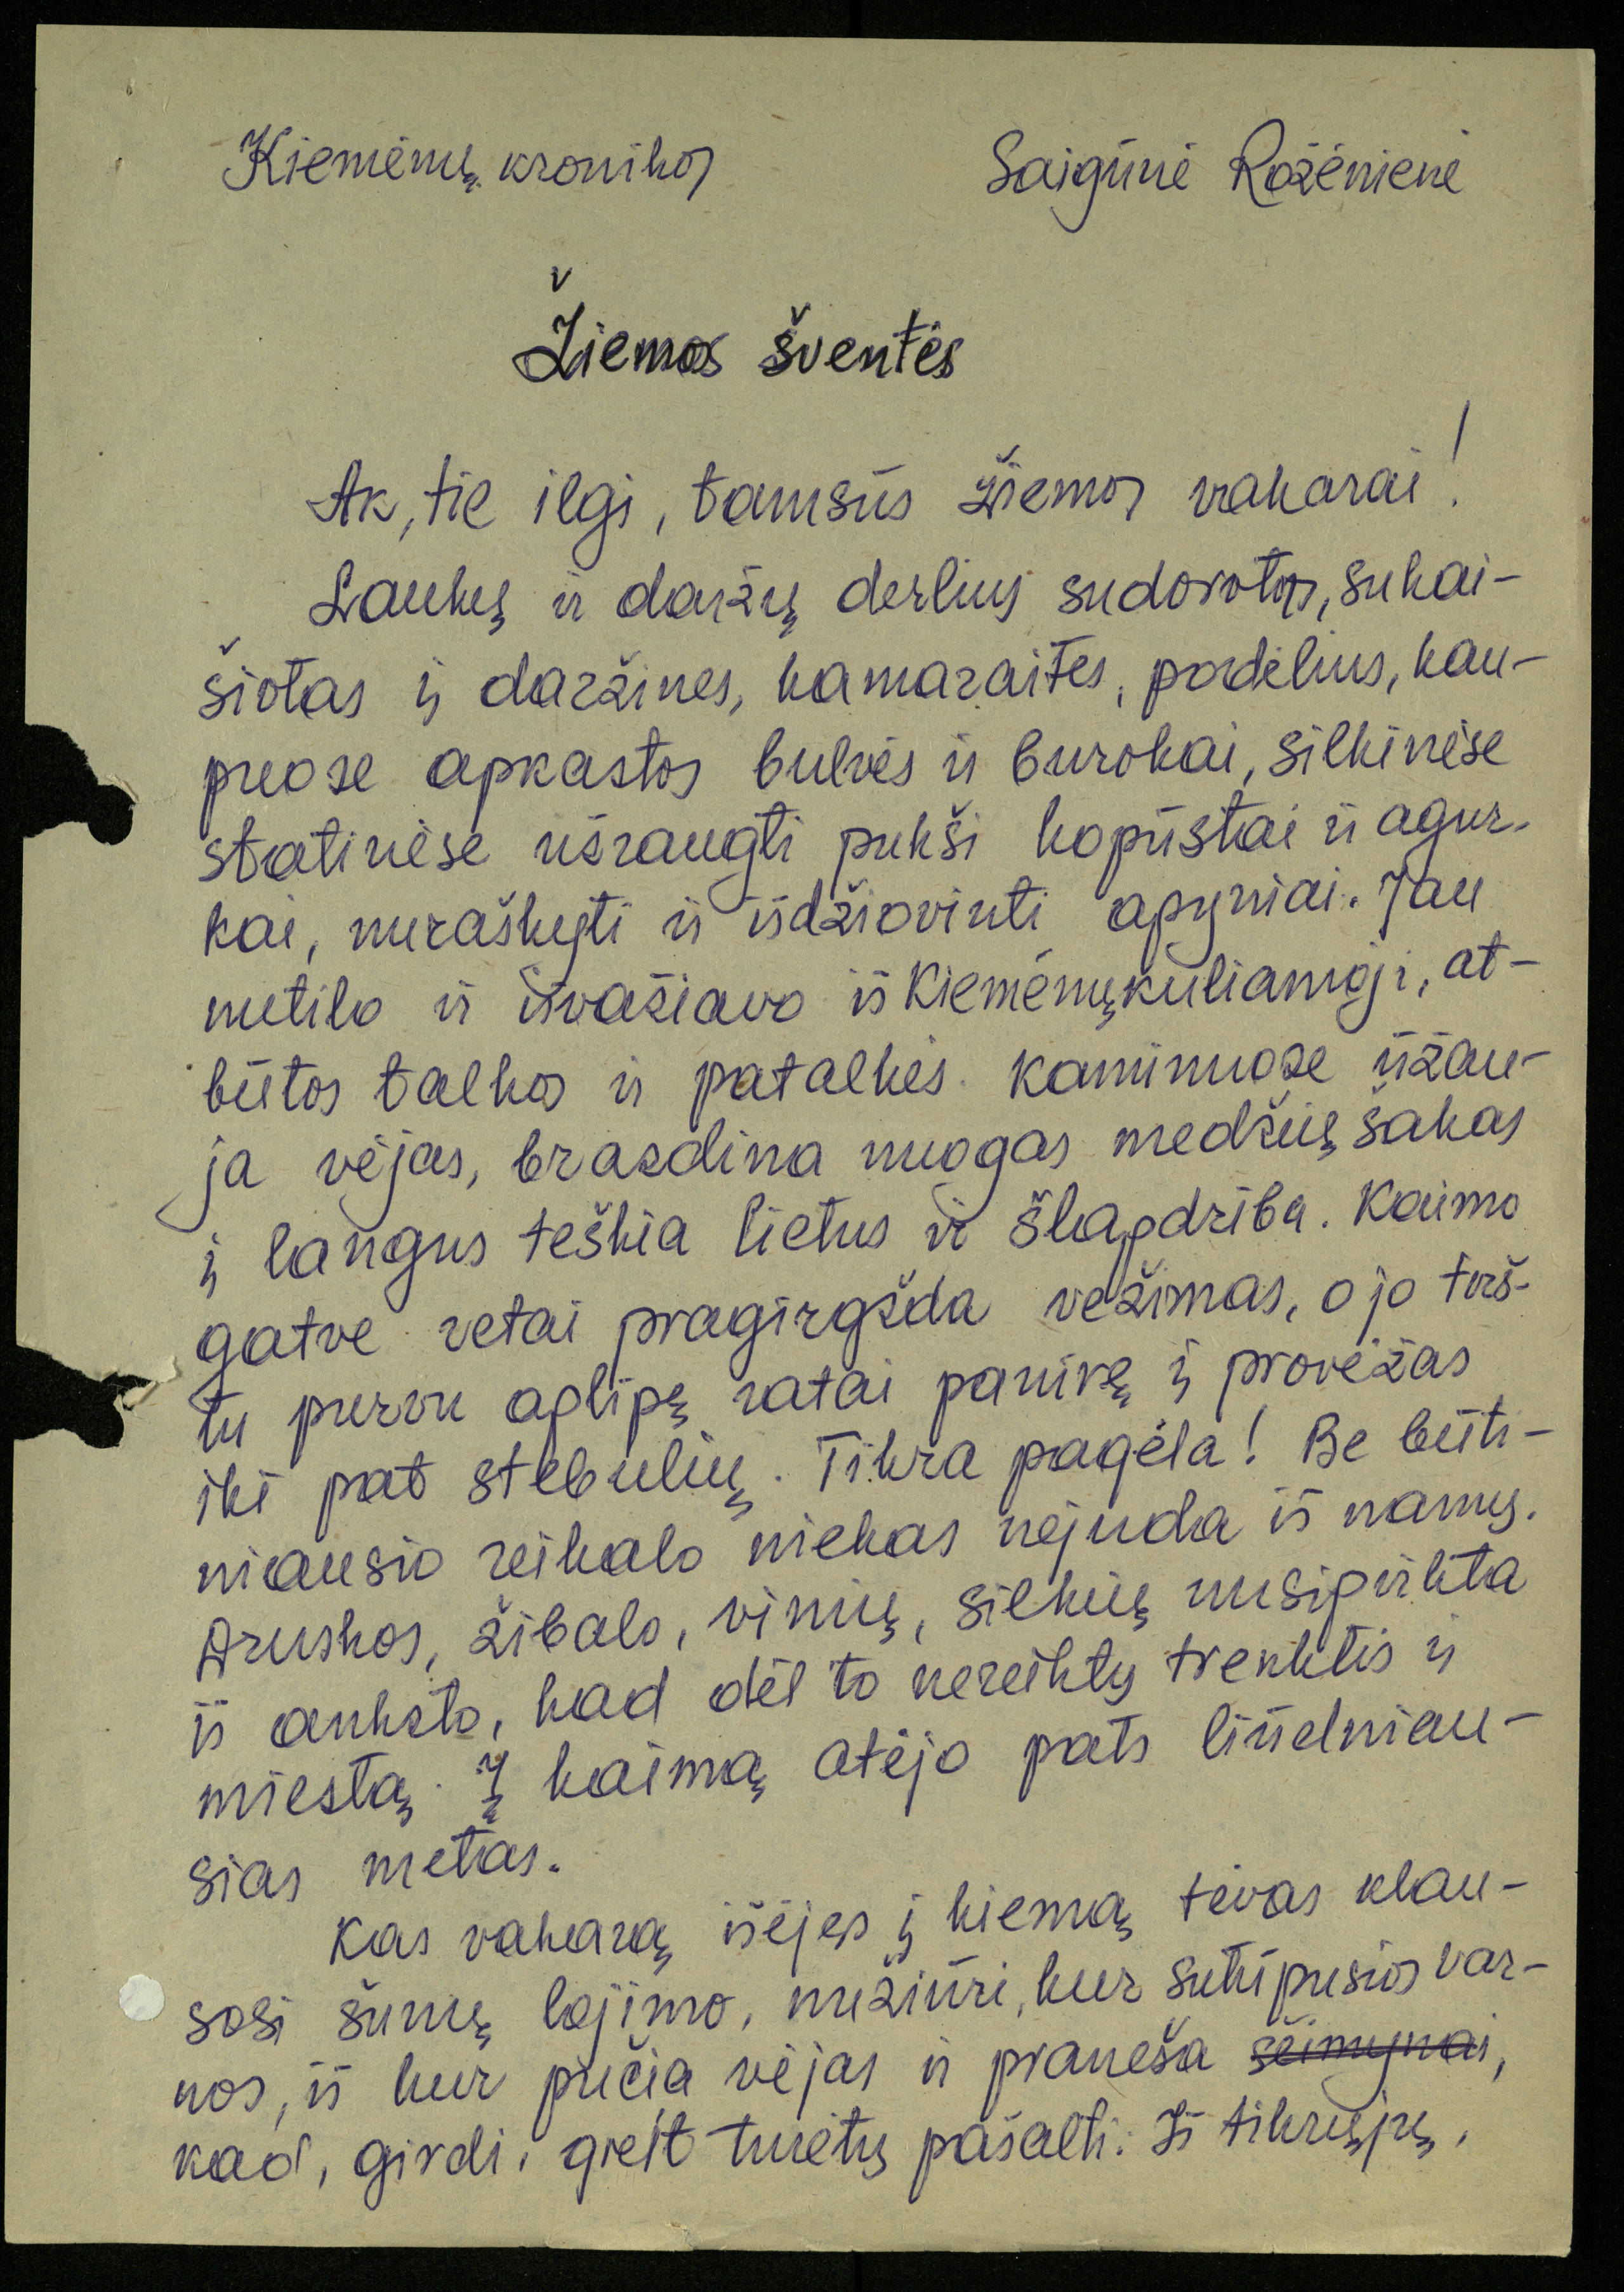 Kiemėnų kronikos
Saigūnė Rožėnienė
Žiemos šventės
Ak, tie ilgi, tamsūs žiemos vakarai!
Laukų ir daržų derlius sudorotas, sukai-
šiotas į daržines, kamaraites, podėlius, kau-
puose apkastos bulvės ir burokai, silkinėse
statinėse užraugti pukši kopūstai ir agur-
kai, nuraškyti ir išdžiovinti apyniai. Jau
nutilo ir išvažiavo iš Kiemėnų kuliamoji, at-
būtos talkos ir patalkės. Kaminuose ūžau-
ja vėjas, brazdina nuogas medžių šakas
į langus teškia lietus ir šlapdriba. Kaimo
gatve retai pragirgžda vežimas, o jo tirš-
tu purvu aplipę ratai panirę į provėžas
iki pat stebulių. Tikra pagėla! Be būti-
niausio reikalo niekas nejuda iš namų.
Druskos, žibalo, vinių, silkių nusipirkta
iš anksto, kad dėl to nereiktų trenktis į
miestą. Į kaimą atėjo pats liūdniau-
sias metas.
Kas vakarą išėjęs į kiemą tėvas klau-
sosi šunų lojimo, nužiūri, kur sutūpusios var-
nos, iš kur pučia vėjas ir praneša šeimynai,
kad, girdi, greit turėtų pašalti. Iš tikrųjų,